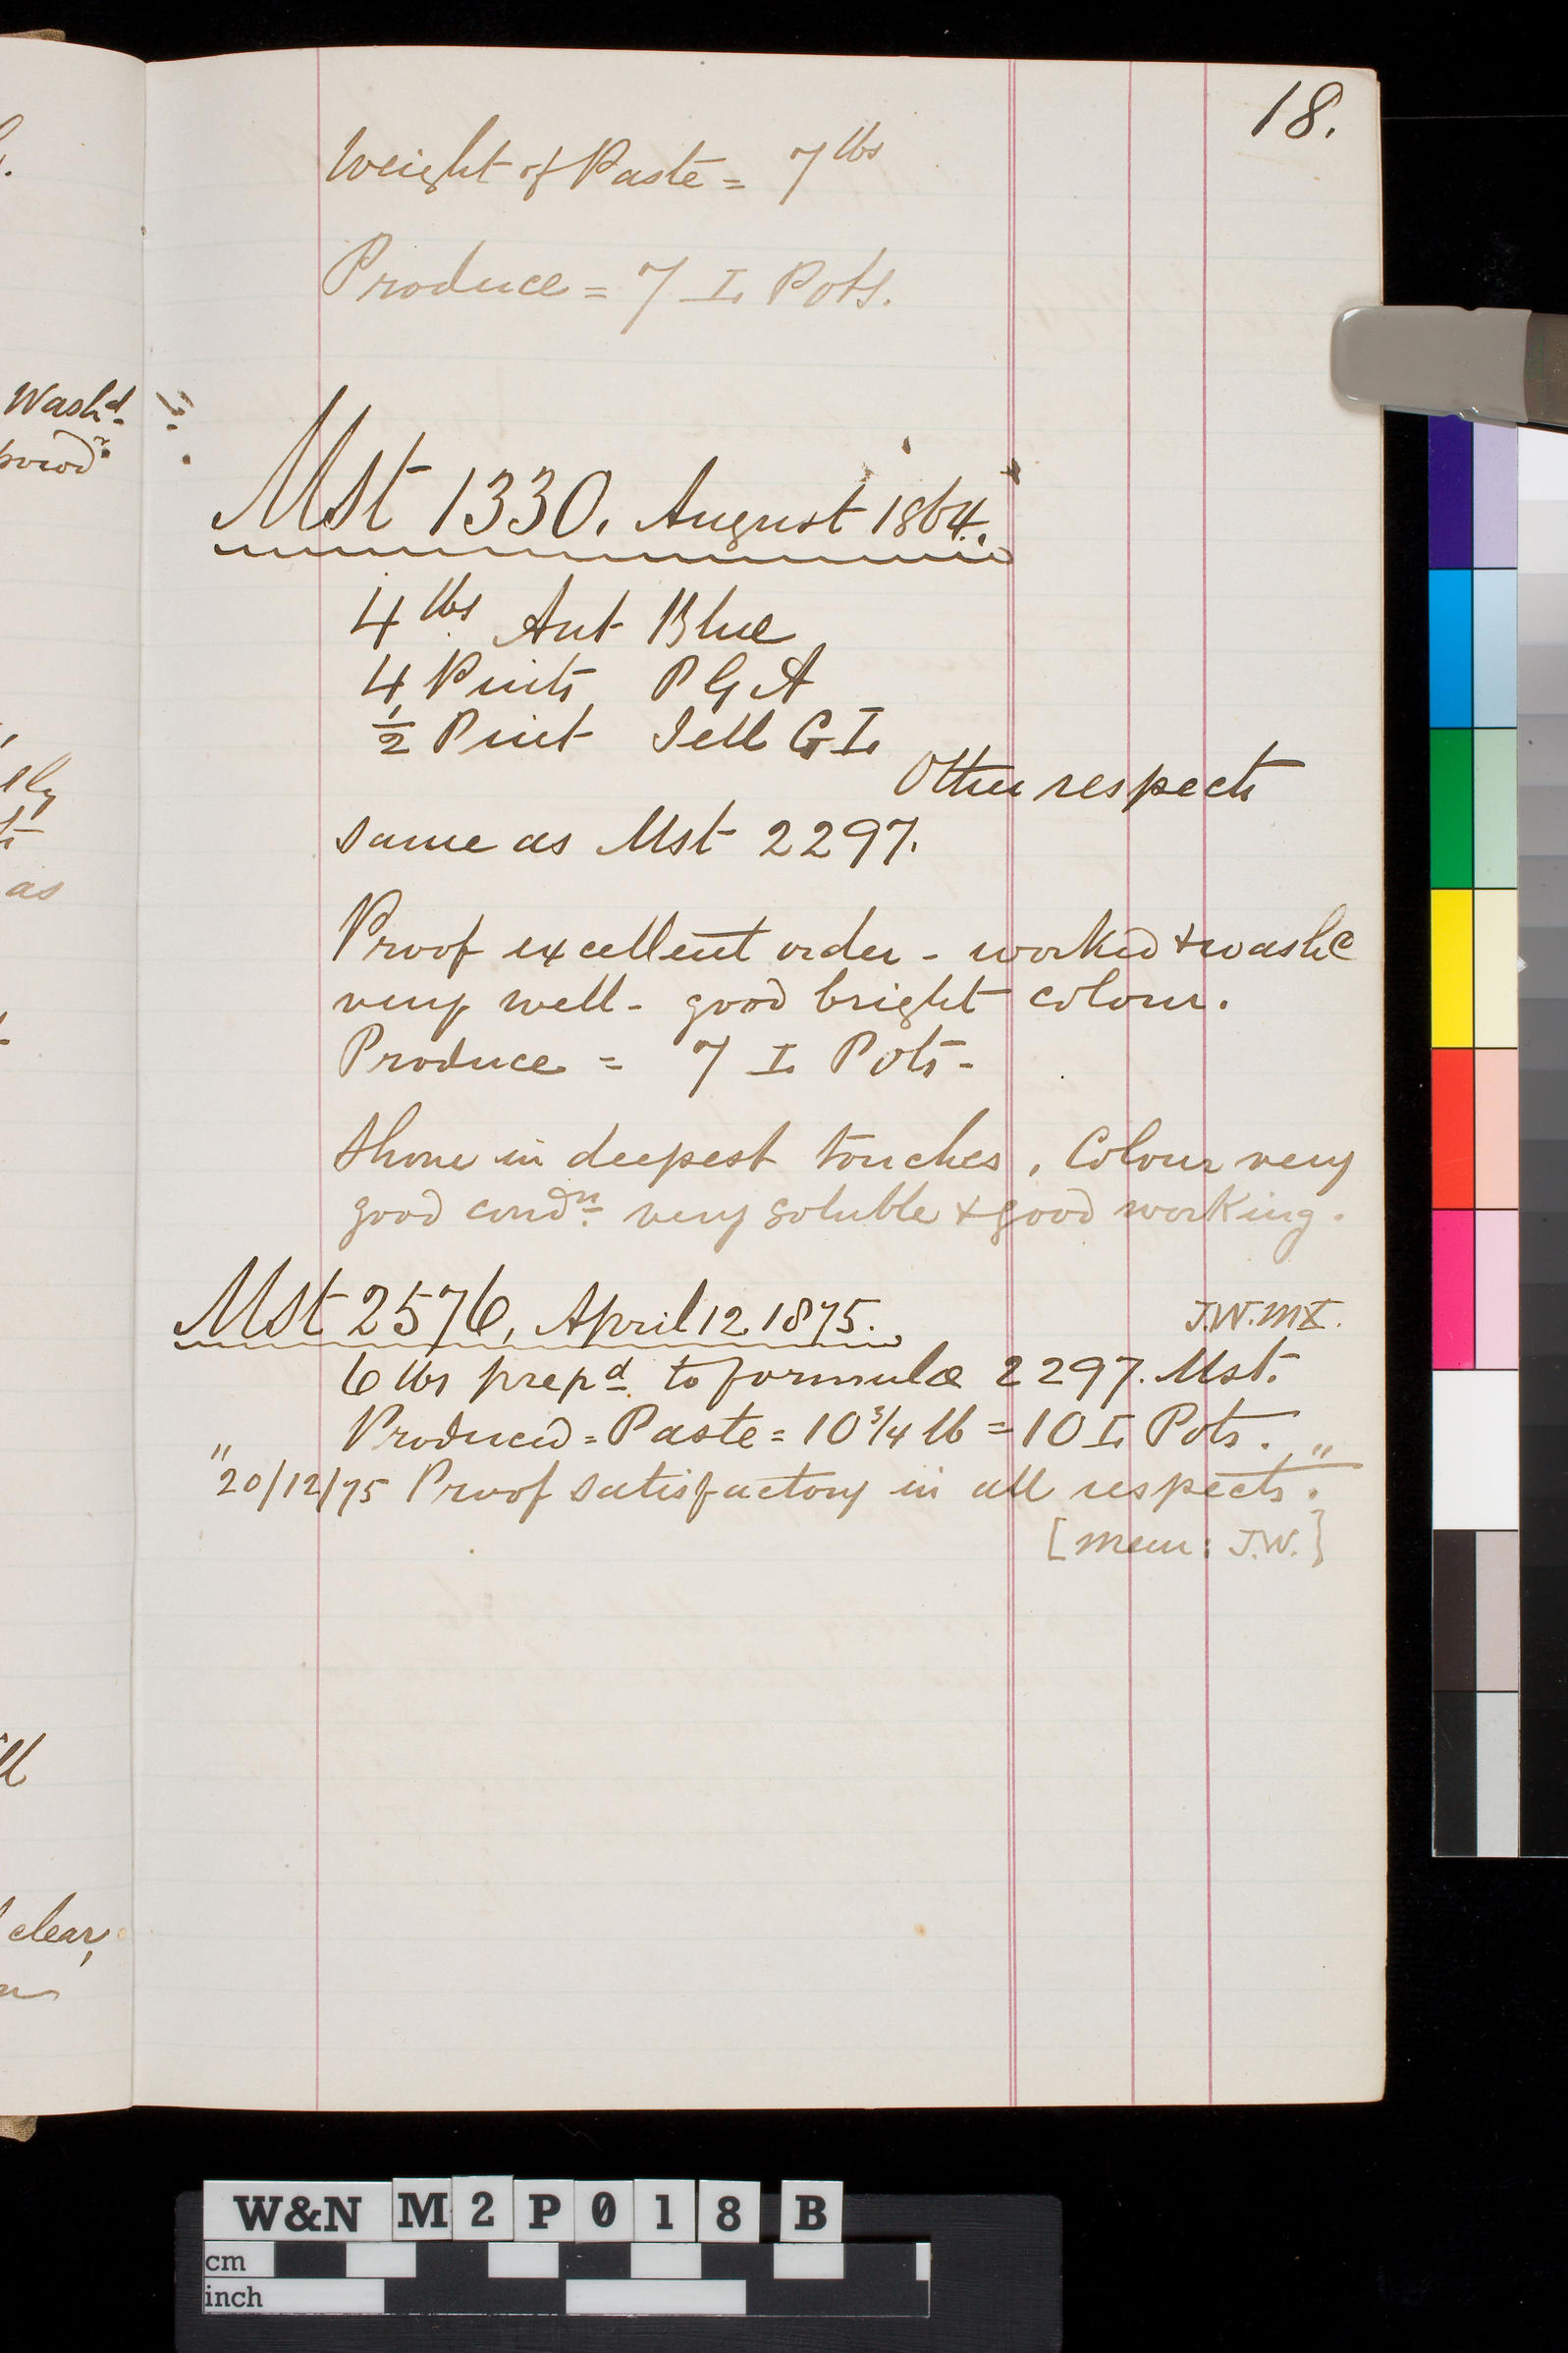 18.
Weight of Paste = 7 lbs
Produce = 7 I. Pots.
Wash.d
powd.r
Mst 1330. August 1864.
4 lbs Ant Blue
4 Pints P G A
1/2 Pint Jell G I.
Other respects
same as Mst 2297.
Proof excellent order - worked & washd
very well - good bright colour.
Produce = 7 I. Pots -
Shone in deepest touches. Colour very
good cond.n very soluble & good working.
Mst 2576. April 12 1875. J.W.
6 lbs prep.d to formula 2297. Mst.
Produced = Paste = 10 3/4 lb = 10 I. Pots. "
" 20/12/75 Proof satisfactory in all respects.
[Mem: J.W.]
as
clear,
W&N M2P018B
cm
inch